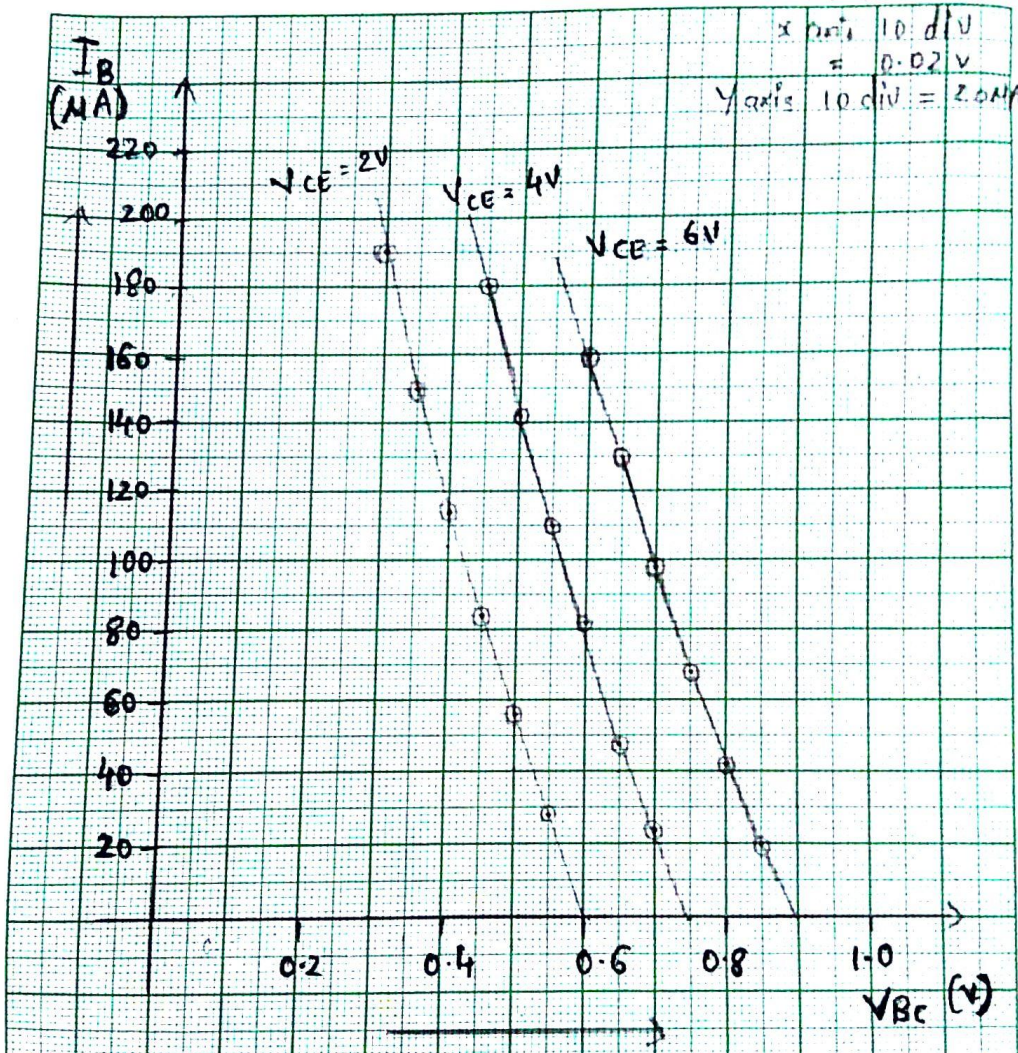 x axis 10 div
= 0.02 V
Y axis 10 div = 20 μA
I_B
(μA)
220
200
180
160
140
120
100
80
60
40
20
V_CE = 2V
V_CE = 4V
V_CE = 6V
0.2 0.4 0.6 0.8 1.0
V_Bc (V)